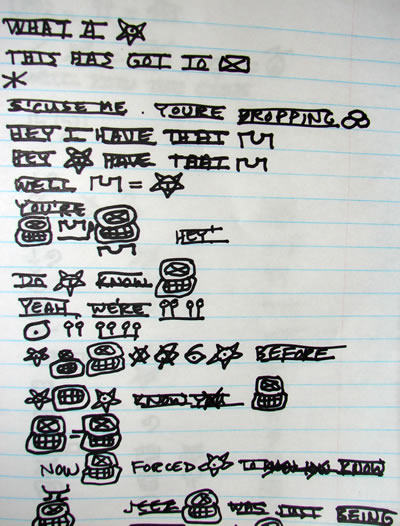 WHAT A
THIS HAS GOT TO
*
S'CUSE ME. YOU'RE DROPPING
HEY I HAVE THAT
HEY HAVE THAT
WELL =
YOU'RE
HEY!
DO KNOW
YEAH, WE'RE
BEFORE
KNOW
=
NOW FORCED TO KNOW
JEEZ WAS JUST BEING